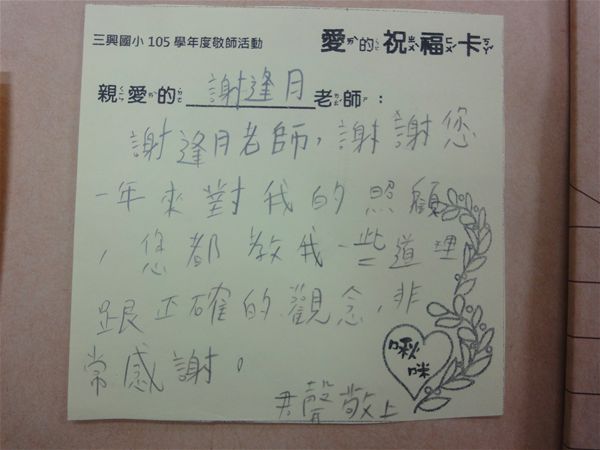 三興國小 105 學年度敬師活動
愛的祝福卡
親愛的 謝逢月 老師：
謝逢月老師，謝謝您
一年來對我的照顧
，您都教我一些道理
跟正確的觀念，非
常感謝。
啾
咪
尹馨敬上